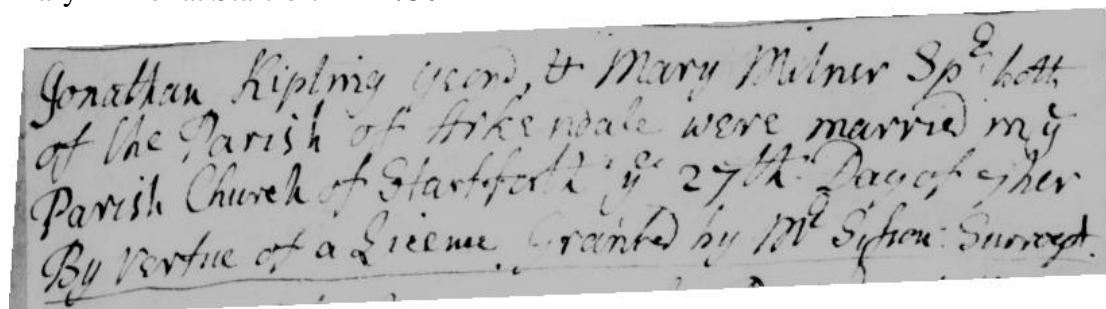 Jonathan Kipling yeom, & Mary Milner Spr both
of the Parish of Arkendale were married in ye
Parish Church of Startforth ye 27th Day of 9ber
By Vertue of a Licence Granted by Mr Sisson Surrogt.